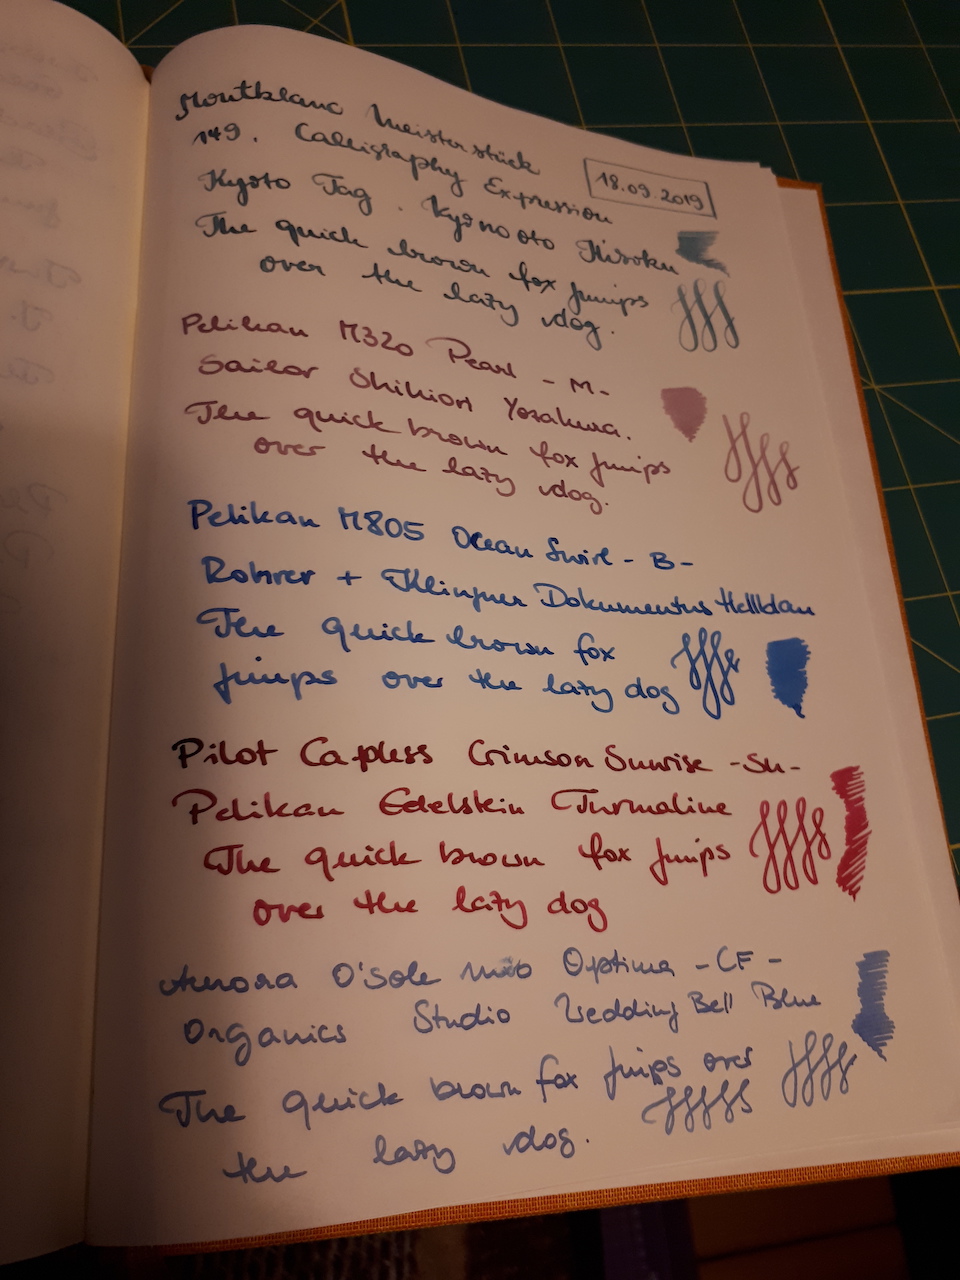 Montblanc Meisterstück
149. Calligraphy Expression
18.09.2019
Kyoto Tag. Kyo no oto Hisoku
The quick brown fox jumps
over the lazy dog.
Pelikan M320 Pearl - M -
Sailor Shikiori Yozakura.
The quick brown fox jumps
over the lazy dog.
Pelikan M805 Ocean Swirl - B -
Rohrer + Klingner Dokumentus Hellblau
The quick brown fox
jumps over the lazy dog
Pilot Capless Crimson Sunrise -SU-
Pelikan Edelstein Turmaline
The quick brown fox jumps
over the lazy dog
Aurora O'Sole mio Optima - CF -
Organics Studio Wedding Bell Blue
The quick brown fox jumps over
the lazy dog.